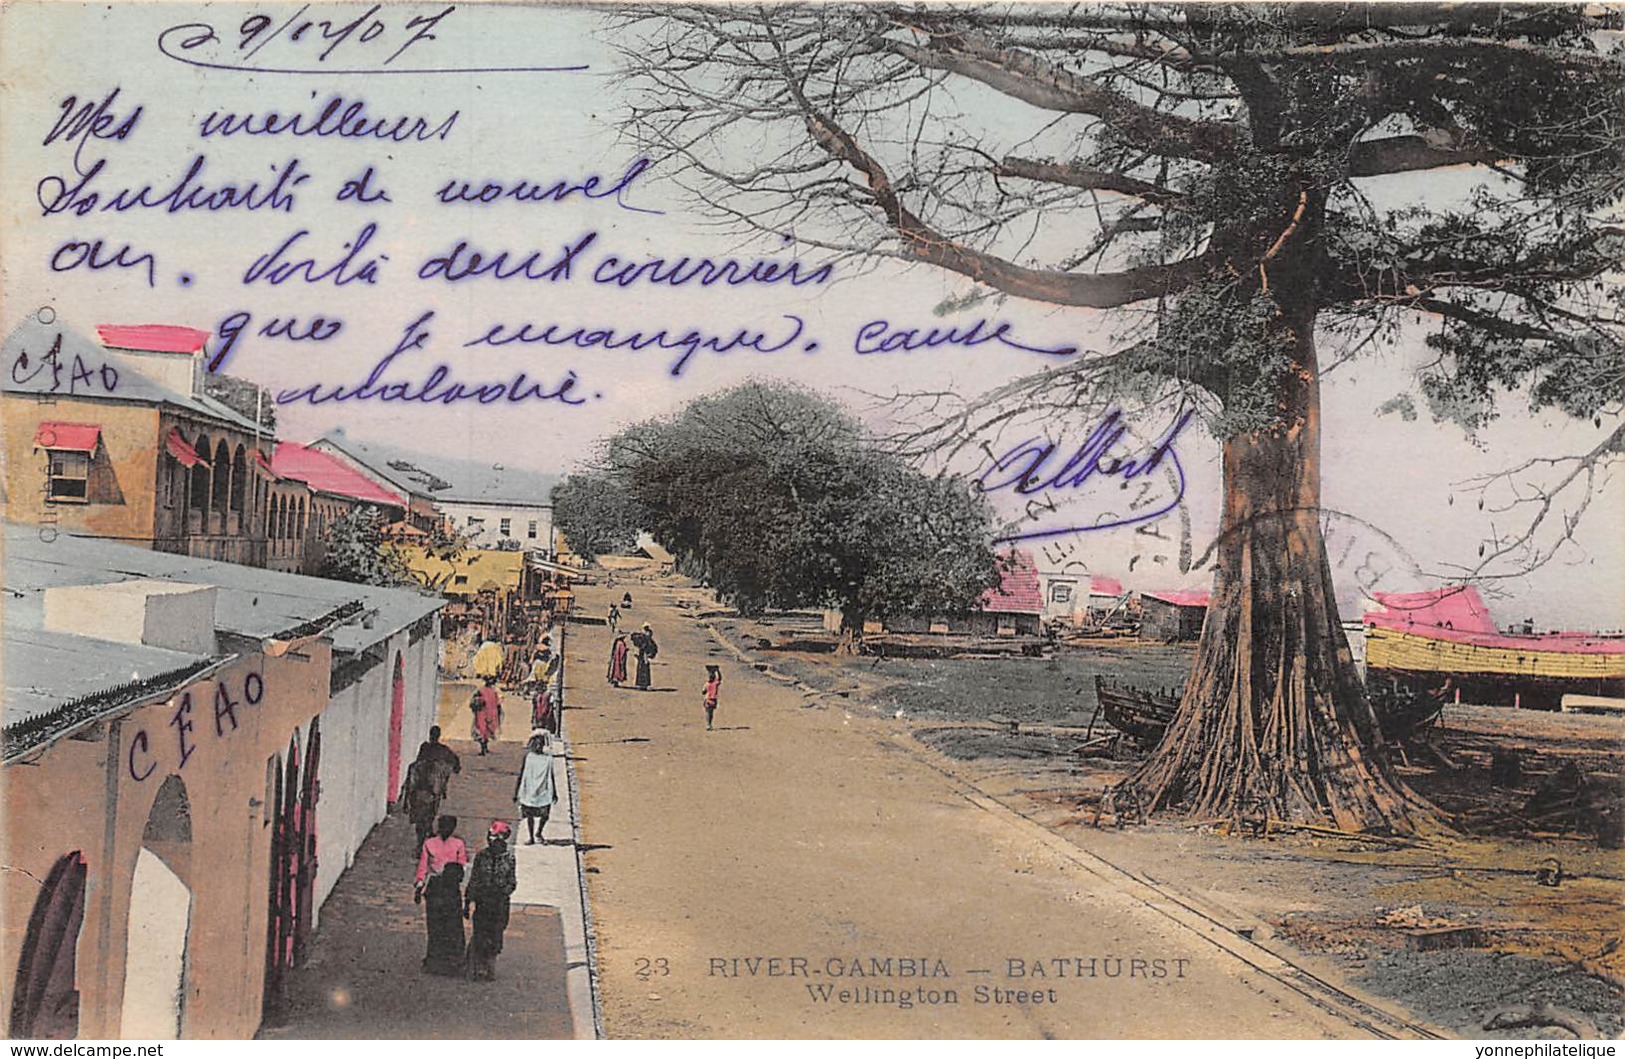 29/12/07
Mes meilleurs
Souhaits de nouvel
an. Voilà deux courriers
que je manque. cause
maladie.
Albert
CFAO
CFAO
23 RIVER-GAMBIA — BATHURST
Wellington Street
delcampe.net
yonnephilatelique